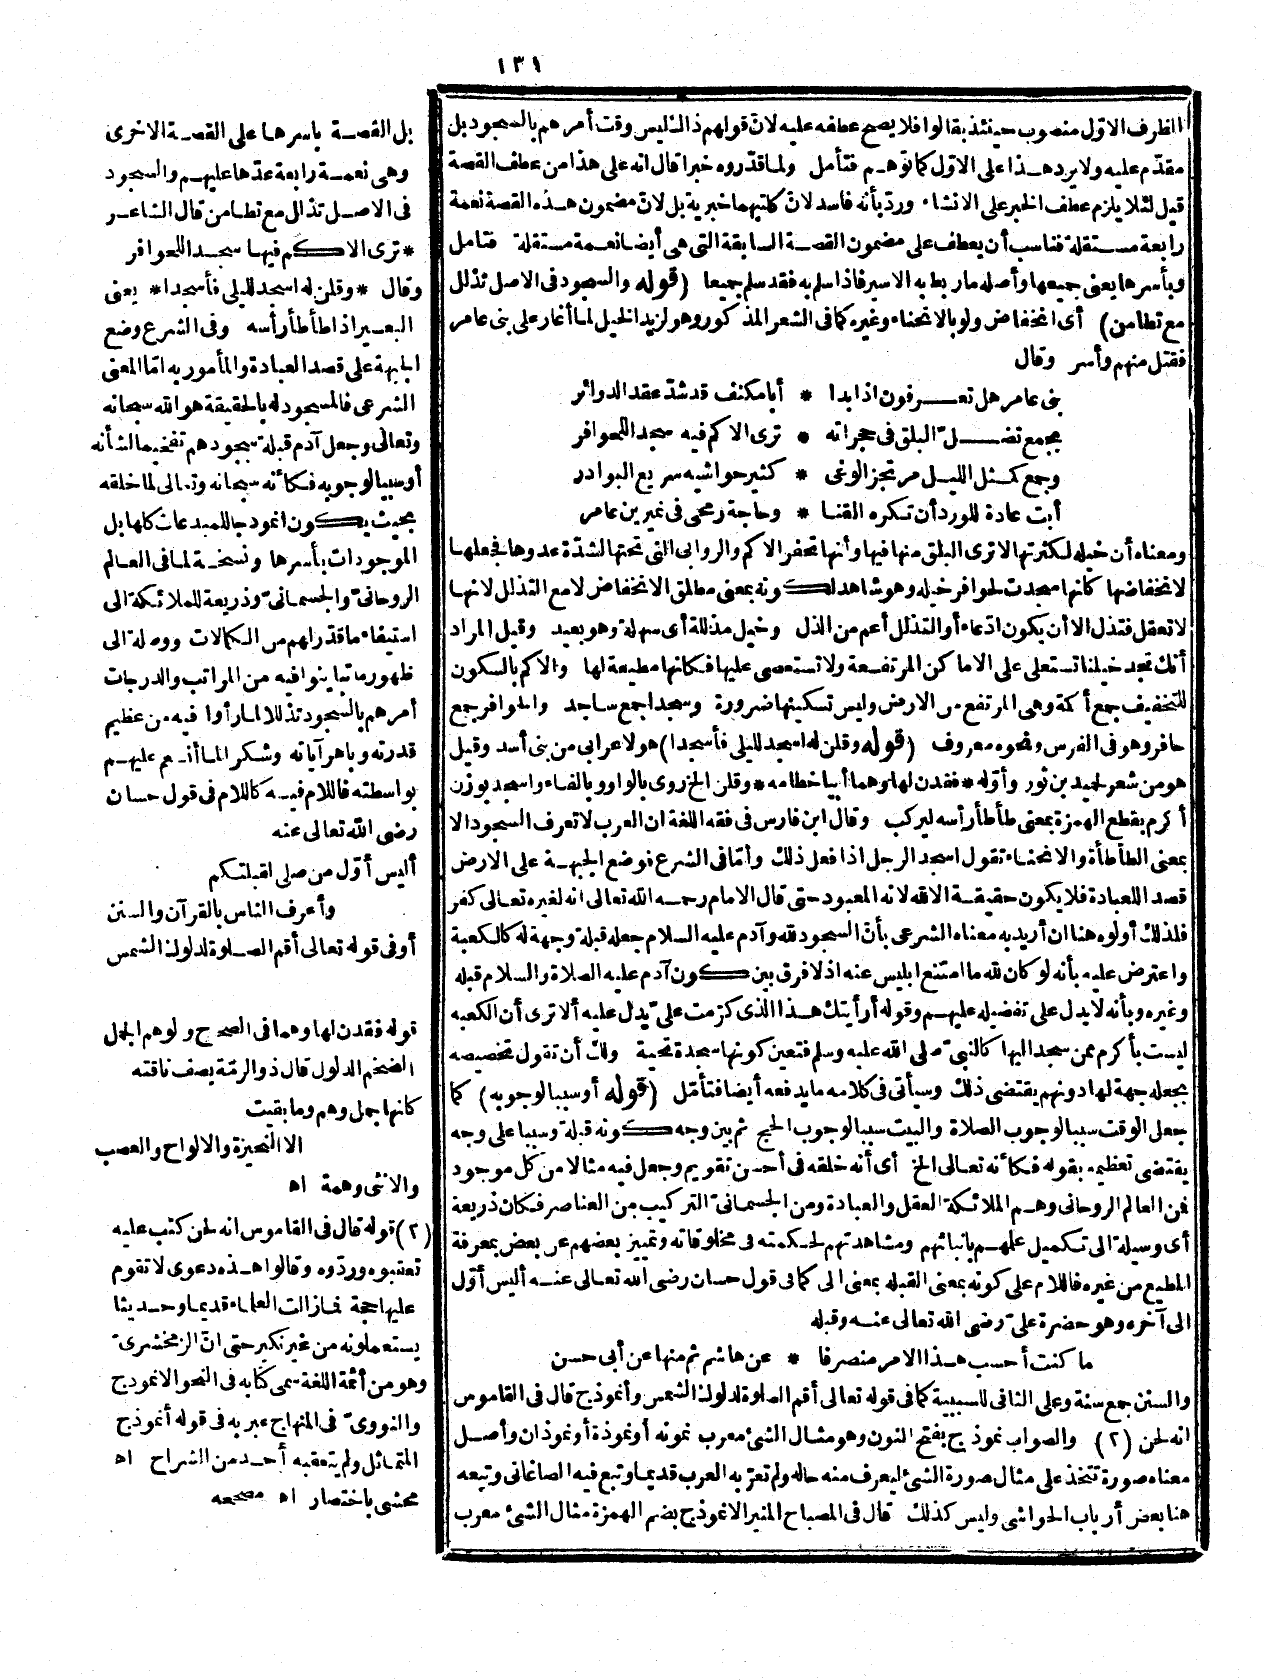 ١٣١
الظرف الاوّل منصوب حينئذ بقالوا فلا يصح عطفه عليه لانّ قولهم ذا ليس وقت أمرهم بالسجود بل
مقدّم عليه ولا يرد هذا على الاوّل كما توهم فتأمل ولما قدّروه خبرا قال انه على هذا من عطف القصة
قيل لئلا يلزم عطف الخبر على الانشاء وردّ بأنه فاسد لانّ كلتيهما خبرية بل لانّ مضمون هذه القصة نعمة
رابعة مستقلة فناسب أن يعطف على مضمون القصة السابقة التى هى أيضا نعمة مستقلة فتأمل
وبأسرها يعنى جميعها وأصله ما ربط به الاسير فاذا سلم به فقد سلم جميعا (قوله والسجود فى الاصل تذلل
مع تطامن) أى انخفاض ولو بالانحناء وغيره كما فى الشعر المذكور وهو لزيد الخيل لما أغار على بنى عامر
فقتل منهم وأسر وقال
بنى عامر هل تعرفون اذا بدا * أبا مكنف قد شدّ عقد الدوائر
بجمع تضلّ البلق فى حجراته * ترى الاكم فيه سجدا للحوافر
وجمع كمثل الليل مرتجز الوغى * كثير حواشيه سريع البوادر
أبت عادة للورد أن تكره القنا * وحاجة رمحى فى نمير بن عامر
ومعناه أن خيله لكثرتها لا ترى البلق منها فيها وأنها تحفر الاكم والروابى التى تحتها لشدّة عدوها فجعلها
لانخفاضها كأنها سجدت لحوافر خيله وهو شاهد لكونه بمعنى مطلق الانخفاض لا مع التذلل لانها
لا تعقل فتذل الا أن يكون ادعاء أو التذلل أعم من الذل وخيل مذللة أى سهلة وهو بعيد وقيل المراد
أنك تجد خيلنا تستعلى على الاماكن المرتفعة ولا تستعصى عليها فكانها مطيعة لها والاكم بالسكون
للتخفيف جمع أكمة وهى المرتفع من الارض وليس تسكينها ضرورة وسجدا جمع ساجد والحوافر جمع
حافر وهو فى الفرس ونحوه معروف (قوله وقلن له اسجد لليلى فأسجدا) هو لاعرابى من بنى أسد وقيل
هو من شعر لحميد بن ثور وأوّله * فقدن لها وهما أبيا خطامه * وقلن الخ روى بالواو وبالفاء واسجد بوزن
أكرم بقطع الهمزة بمعنى طأطأ رأسه ليركب وقال ابن فارس فى فقه اللغة ان العرب لا تعرف السجود الا
بمعنى الطأطأة والانحناء تقول اسجد الرجل اذا فعل ذلك وأمّا فى الشرع فوضع الجبهة على الارض
قصد اللعبادة فلا يكون حقيقة الا لله لانه المعبود حتى قال الامام رحمه الله تعالى انه لغيره تعالى كفر
فلذلك أولوه هنا ان أريد به معناه الشرعى بأنّ السجود لله وآدم عليه السلام جعله قبلة ووجهة له كالكعبة
واعترض عليه بأنه لو كان لله ما امتنع ابليس عنه اذ لا فرق بين كون آدم عليه الصلاة والسلام قبله
وغيره وبأنه لا يدل على تفضيله عليهم وقوله أرأيتك هذا الذى كرّمت علىّ يدل عليه ألا ترى أن الكعبه
ليست بأكرم ممن سجد اليها كالنبىّ صلى الله عليه وسلم فتعين كونها سجدة تحية ولك أن تقول تخصيصه
بجعله جهة لها دونهم يقتضى ذلك وسيأتى فى كلامه ما يدفعه أيضا فتأمّل (قوله أو سببا لوجوبه) كما
جعل الوقت سببا لوجوب الصلاة والبيت سببا لوجوب الحج ثم بين وجه كونه قبلة وسببا على وجه
يقتضى تعظيمه بقوله فكأنه تعالى الخ أى أنه خلقه فى أحسن تقويم وجعل فيه مثالا من كل موجود
فمن العالم الروحانى وهم الملائكة العقل والعبادة ومن الجسمانىّ التركيب من العناصر فكان ذريعة
أى وسيلة الى تكميل علمهم بانبائهم ومشاهدتهم لحكمته فى مخلوقاته وتمييز بعضهم عن بعض بمعرفة
المطيع من غيره فاللام على كونه بمعنى القبله بمعنى الى كما فى قول حسان رضى الله تعالى عنه أليس أوّل
الى آخره وهو حضرة علىّ رضى الله تعالى عنه وقبله
ما كنت أحسب هذا الامر منصرفا * عن هاشم ثم منها عن أبى حسن
والسنن جمع سنة وعلى الثانى للسببية كما فى قوله تعالى أقم الصلوة لدلوك الشمس وأنموذج قال فى القاموس
انه لحن (٢) والصواب نموذج بفتح النون وهو مثال الشئ معرب نمونه أو نموذة أو نموذان وأصل
معناه صورة تتخذ على مثال صورة الشئ ليعرف منه حاله ولم تعرّبه العرب قديما وتبع فيه الصاغانى وتبعه
هنا بعض أرباب الحواشى وليس كذلك قال فى المصباح المنير الانموذج بضم الهمزة مثال الشئ معرب
بل القصة باسرها على القصة الاخرى
وهى نعمة رابعة عدّها عليهم والسجود
فى الاصل تذلل مع تطامن قال الشاعر
* ترى الاكم فيها سجدا للحوافر
وقال * وقلن له اسجد لليلى فأسجدا * يعنى
البعير اذا طأطأ رأسه وفى الشرع وضع
الجبهة على قصد العبادة والمأمور به امّا المعنى
الشرعى فالمسجود له بالحقيقة هو الله سبحانه
وتعالى وجعل آدم قبلة سجودهم تفخيما لشأنه
أو سببا لوجوبه فكأنّه سبحانه وتعالى لما خلقه
بحيث يكون انموذجا للمبدعات كلها بل
الموجودات بأسرها ونسخة لما فى العالم
الروحانىّ والجسمانىّ وذريعة للملائكة الى
استيفاء ما قدّر لهم من الكمالات ووصلة الى
ظهور ما تباينوا فيه من المراتب والدرجات
أمرهم بالسجود تذللا لما رأوا فيه من عظيم
قدرته وباهر آياته وشكرا لما أنعم عليهم
بواسطته فاللام فيه كاللام فى قول حسان
رضى الله تعالى عنه
أليس أوّل من صلى لقبلتكم
وأعرف الناس بالقرآن والسنن
أو فى قوله تعالى أقم الصلوة لدلوك الشمس
قوله فقدن لها وهما فى الصحاح ولوهم الجمل
الضخم الذلول قال ذو الرمّة يصف ناقته
كانها جمل وهم وما بقيت
الا النحيزة والالواح والعصب
والانثى وهمة اه
(٢) قوله قال فى القاموس انه لحن كتب عليه
تعقبوه وردّوه وقالوا هذه دعوى لا تقوم
عليها حجة فما زالت العلماء قديما وحديثا
يستعملونه من غير نكير حتى انّ الزمخشرىّ
وهو من أئمة اللغة سمى كتابه فى النحو الانموذج
والنووىّ فى المنهاج عبر به فى قوله أنموذج
المتماثل ولم يتعقبه أحد من الشراح اه
محشى باختصار اه مصححه